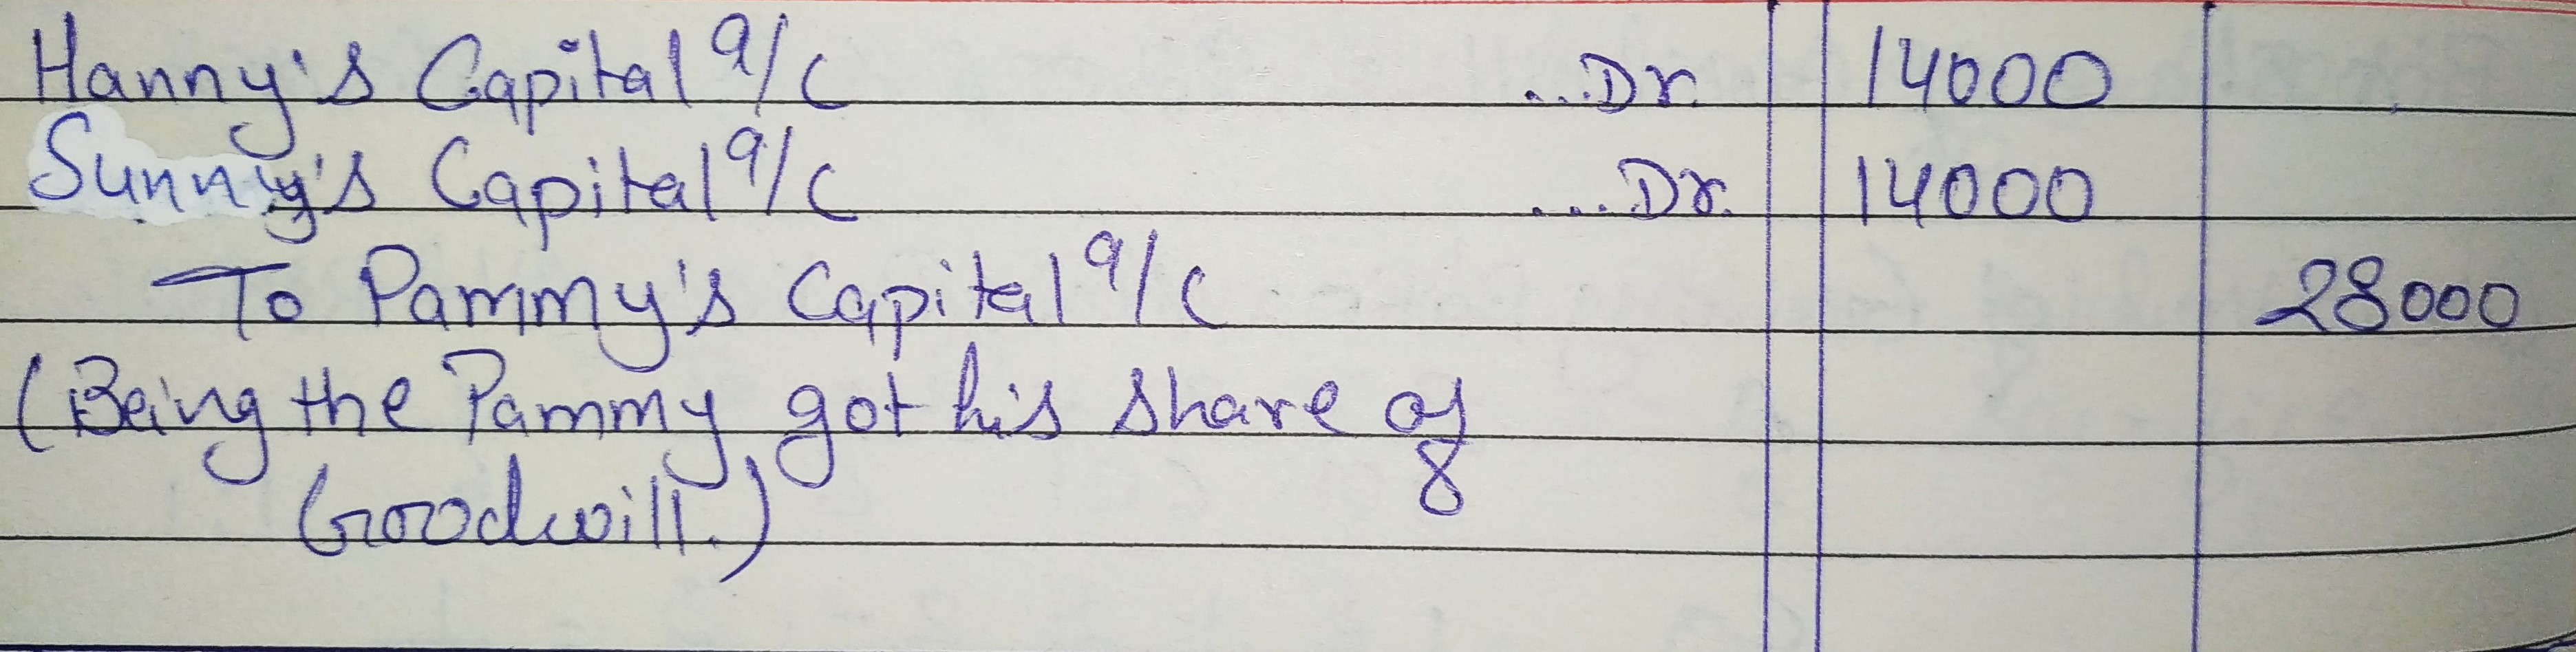 Hanny's Capital a/c ...Dr. 14000
Sunny's Capital a/c ...Dr. 14000
To Pammy's Capital a/c 28000
(Being the Pammy got his share of
Goodwill.)